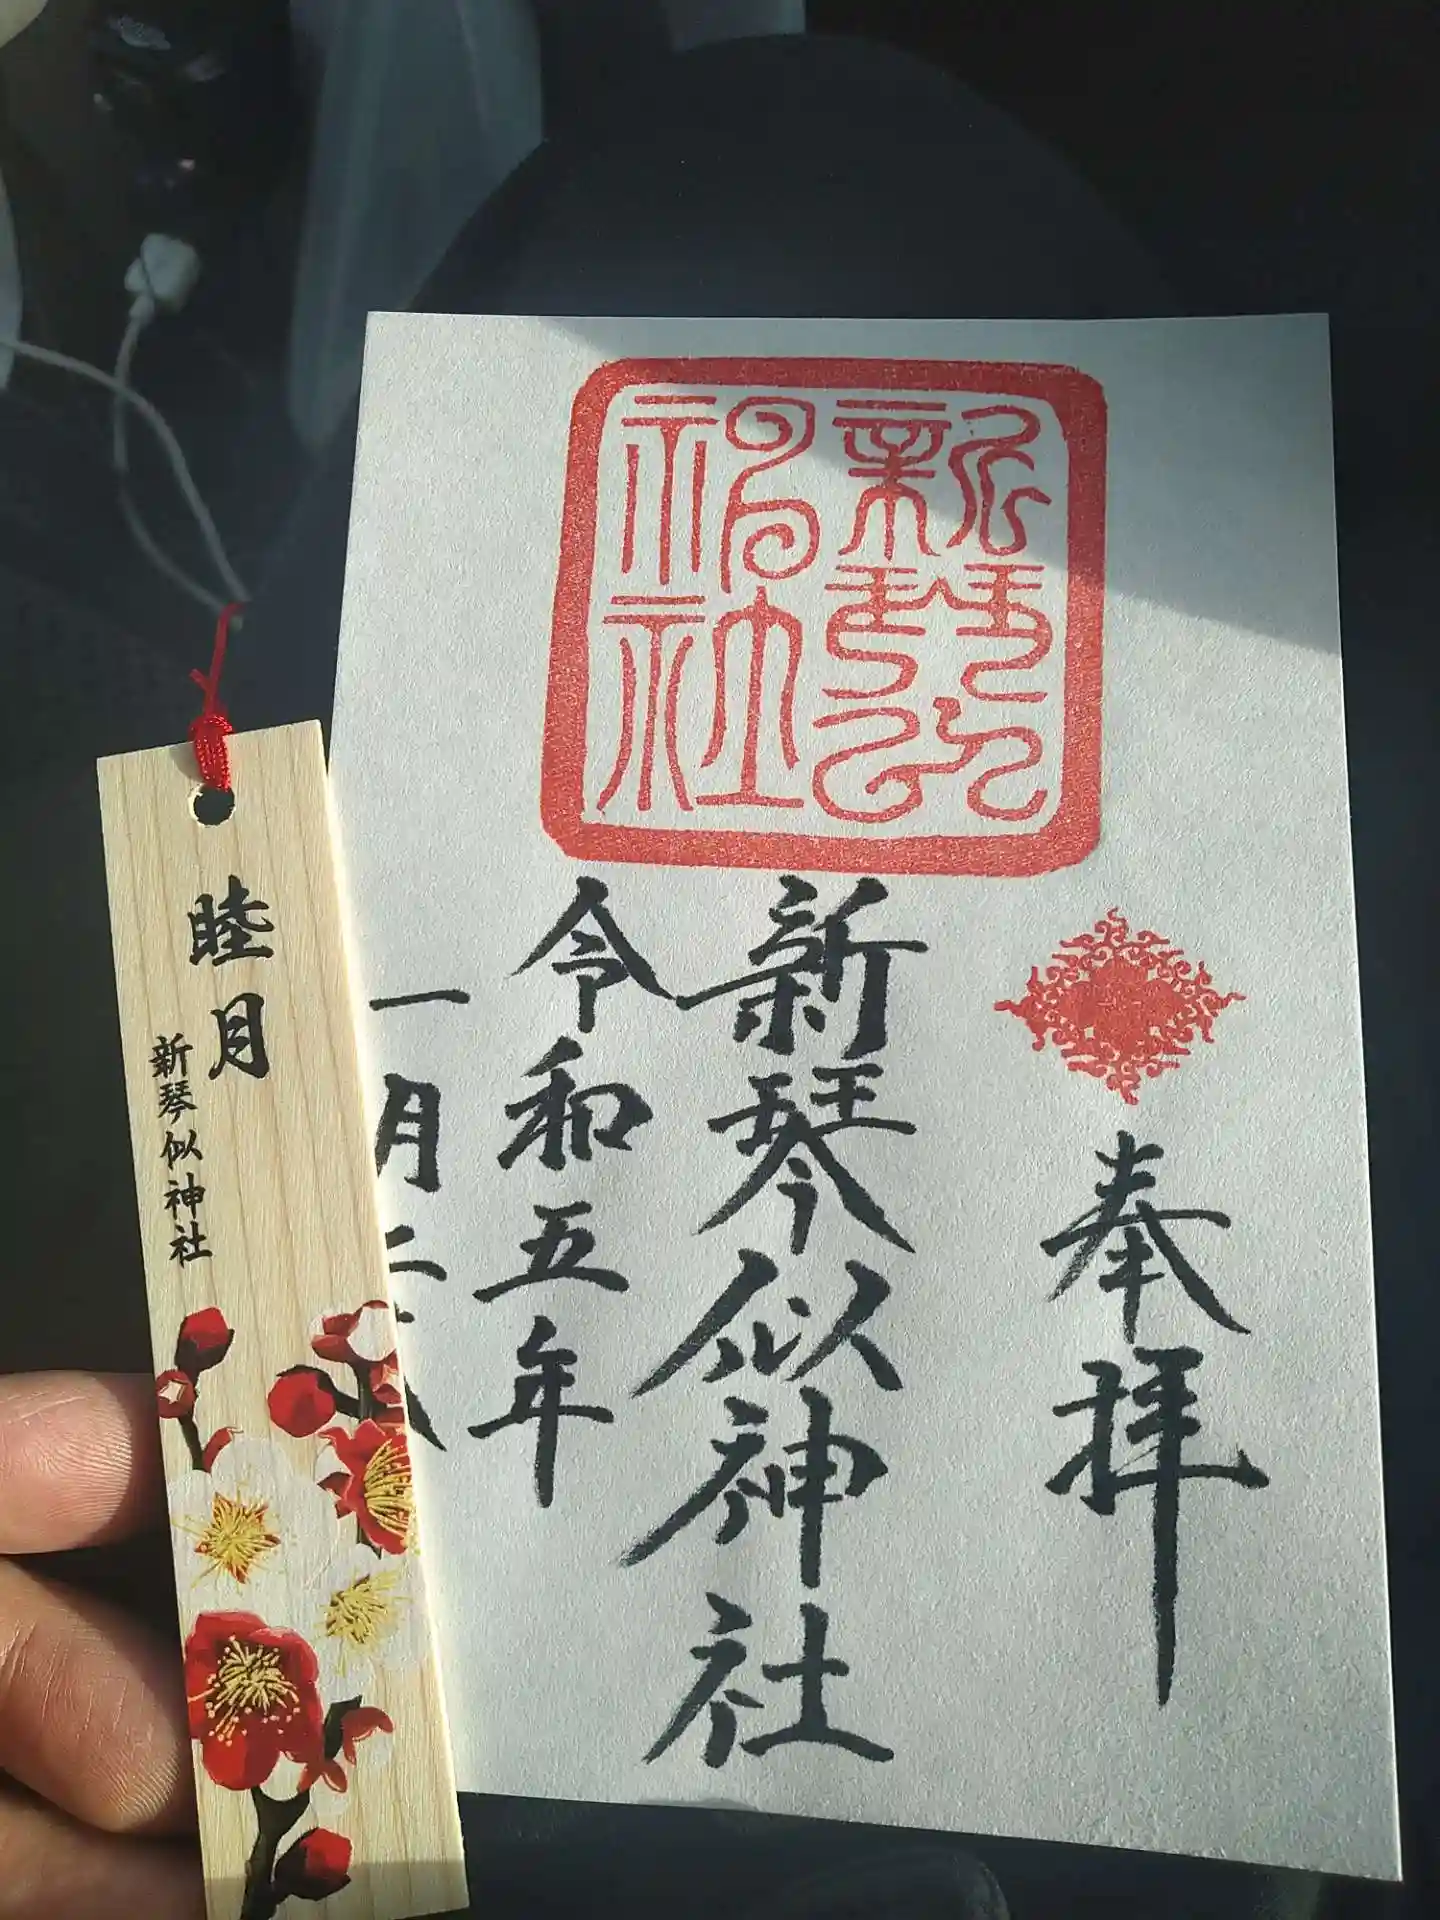 奉拝
新琴似神社
新琴似神社
令和五年
一月二
睦月
新琴似神社